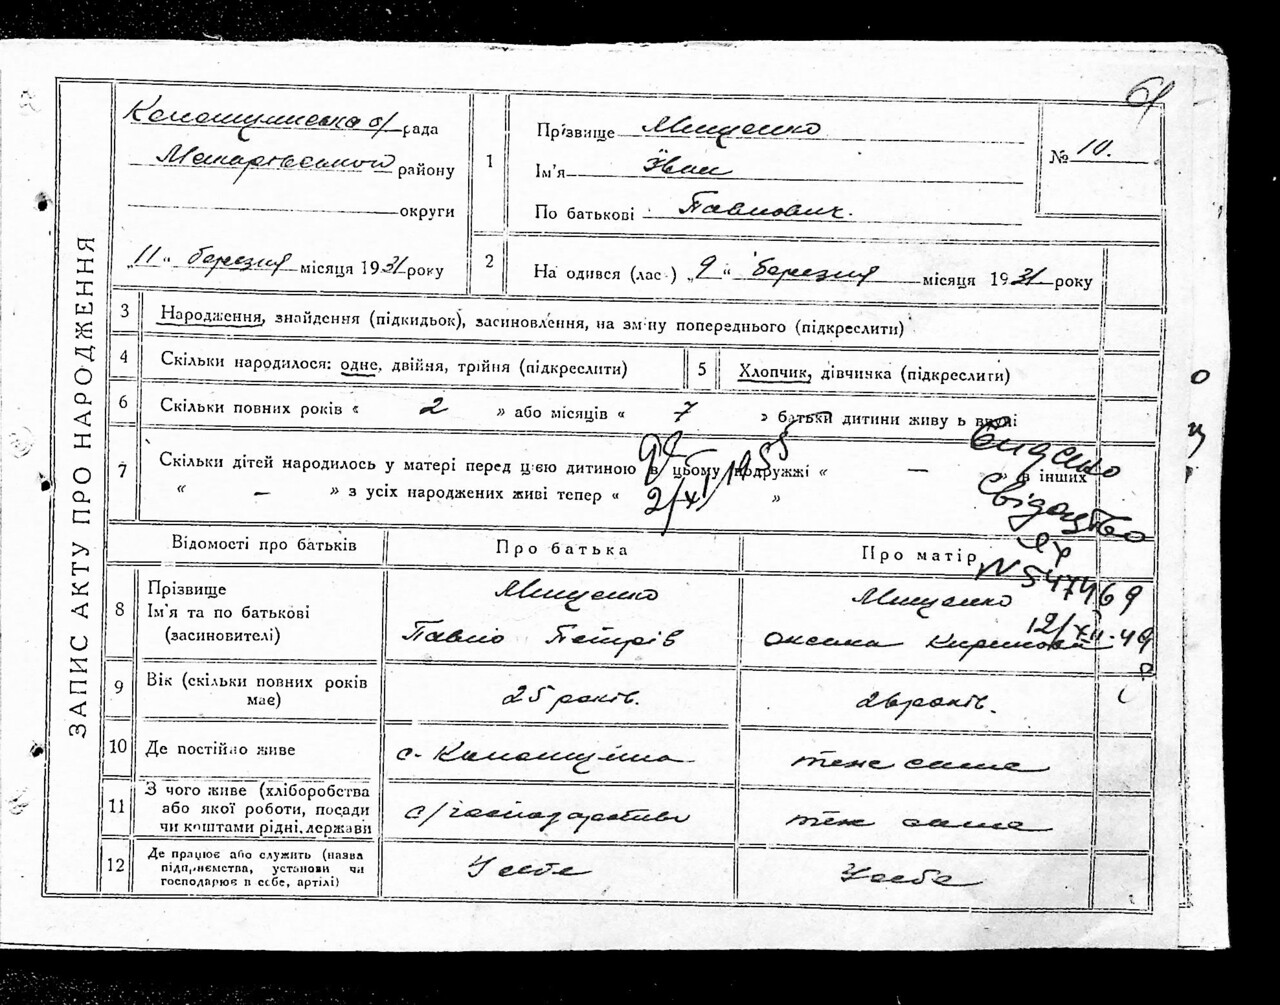 61
ЗАПИС АКТУ ПРО НАРОДЖЕННЯ
с/рада
Макарівського району
округи
„11“ березня місяця 1931 року
1
Прізвище Мищенко
Ім'я Іван
По батькові Павлович.
№ 10.
2
На одився (лас ) „9“ березня місяця 1931 року
3 Народження, знайдення (підкидьок), засиновлення, на зміну попереднього (підкреслити)
4 Скільки народилося: одне, двійня, трійня (підкреслити)
5 Хлопчик, дівчинка (підкреслити)
6 Скільки повних років « 2 » або місяців « 7 » батьки дитини живу ь вкупі
7 Скільки дітей народилось у матері перед цією дитиною в цьому подружжі « — » в інших
« — » з усіх народжених живі тепер « »
2/XI 1955
Видано
Свідоцтво
№ 547469
12/XII-49
р
Відомості про батьків
Про батька
Про матір
8 Прізвище
Ім'я та по батькові
(засиновителі)
Мищенко
Павло Петрів
Мищенко
Оксана
9 Вік (скільки повних років
має)
25 років.
26 років.
10 Де постійно живе
с.
теж саме
11 З чого живе (хліборобства
або якої роботи, посади
чи коштами рідні, держави
с/господарство
теж саме
12 Де працює або служить (назва
підприємства, установи чи
господарює в себе, артілі)
У себе
У себе